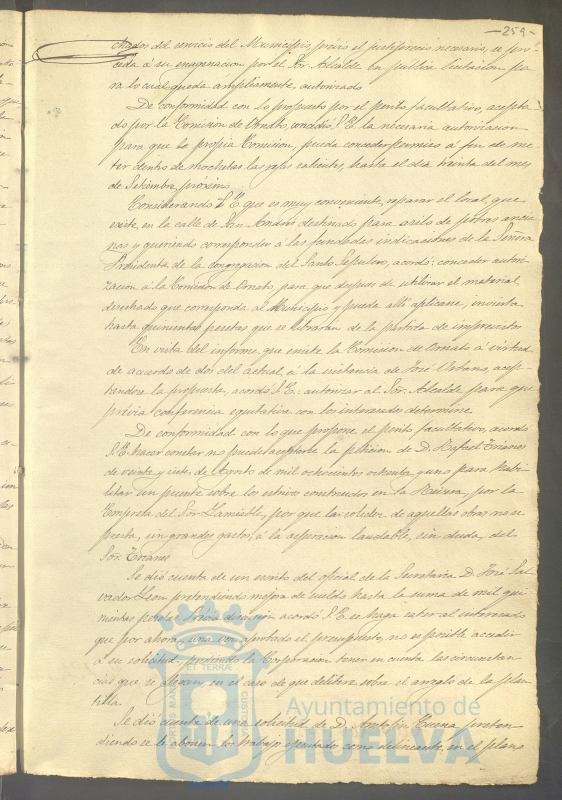 -259-
chados del servicio del Municipio previo el justiprecio necesario, se pro-
ceda á su enagenacion por el Sor. Alcalde en pública licitacion pa-
ra lo cual queda ampliamente autorizado
De conformidad con lo propuesto por el perito facultativo, acepta-
do por la Comision de Ornato, concedió S. E. la necesaria autorizacion
para que la propia Comision, pueda conceder permiso á fin de me-
ter dentro de mochetas las rejas salientes, hasta el dia treinta del mes
de Setiembre proximo
Considerando S. E. que es muy conveniente, reparar el local, que
existe, en la calle de San Andres destinado para asilo de pobres ancia-
nas y queriendo corresponder á las fundadas indicaciones de la Señora
Presidenta de la Congregacion del Santo Sepulcro, acordó: conceder autori-
zacion á la Comision de Ornato, para que despues de utilizar el material
desechado que corresponda al Municipio y pueda allí aplicarse, invierta
hasta quinientas pesetas que se librarán de la partida de imprevistos
En vista del informe, que emite la Comision de Ornato á virtud
de acuerdo de dos del actual, á la instancia de José Urbano, acep-
tandose la propuesta, acordó S. E.: autorizar al Sor. Alcalde para que
previa conferencia equitativa con los interesados determine
De conformidad con lo que propone el perito facultativo, acordó
S. E. hacer constar no puede aceptarse la peticion de D. Rafael Trianes
de veinte y siete de Agosto de mil ochocientos ochenta y uno para habi-
litar un puente sobre los estrivos construidos en la por la
Empresa del Sor. por que la solidez de aquellas obras no se
presta, sin grandes gastos, á la aspiracion laudable, sin duda, del
Sor. Trianes
Se dió cuenta de un escrito del oficial de la Secretaria D. José Sal-
vador Leon pretendiendo mejora de sueldo hasta la suma de mil qui-
nientas pesetas. Previa discusion acordó S. E. se haga saber al interesado
que por ahora, una vez aprobado el presupuesto, no es posible acceder
á su solicitud, pudiendo la Corporacion tener en cuenta las circunstan-
cias que se alegan en el caso de que delibere sobre el arreglo de la plan-
tilla
Se dió cuenta de una solicitud de D. Antolin Cuena preten-
diendo se le abonen los trabajos ejecutados como delineante, en el plano
ET TERRAE
PORTUS MARIS
CUSTODIA
Ayuntamiento de
HUELVA